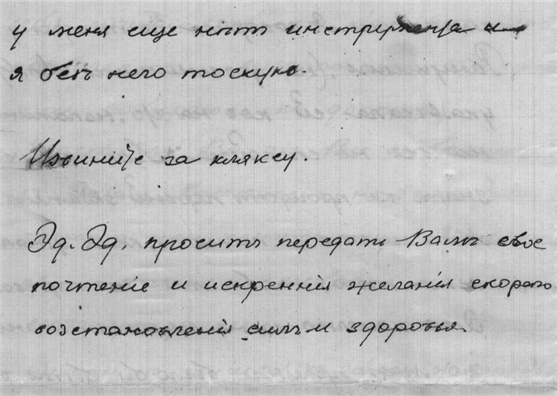 у меня еще нѣтъ инструмента и
я безъ него тоскую.
Извините за кляксу.
Эд. Эд. проситъ передать Вамъ свое
почтеніе и искреннія желанія скораго
возстановленія силъ и здоровья.